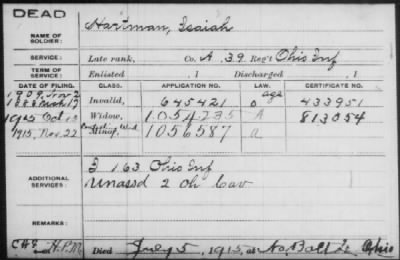 DEAD
NAME OF SOLDIER: Hartman, Isaiah
SERVICE: Late rank, Co. A. 39. Reg't Ohio Inf
TERM OF SERVICE: Enlisted , 1 Discharged , 1
DATE OF FILING. CLASS. APPLICATION NO. LAW. CERTIFICATE NO.
1909, Nov 2 age
188 17 Invalid, 645421 o 433951
1915 Oct 13 Widow, 1054235 A 813054
1915, Nov. 22 Minor, 1056587 a
ADDITIONAL SERVICES: I 163 Ohio Inf
Unassd 2 Oh Cav
REMARKS:
H.P.M. Died July 5, 1915, at No. Balt Ohio